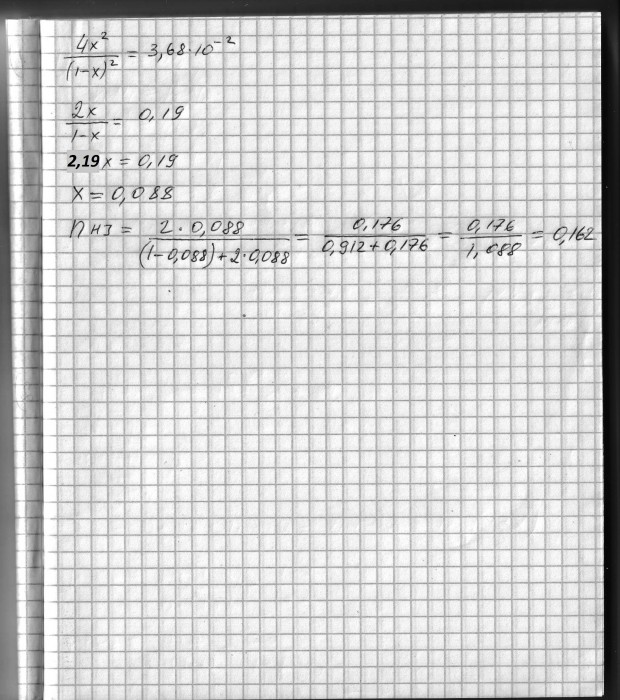 4x²/(1-x)² = 3,68·10⁻²
2x/1-x = 0,19
2,19x = 0,19
x = 0,088
n нз = 2·0,088/(1-0,088)+2·0,088 = 0,176/0,912+0,176 = 0,176/1,088 = 0,162